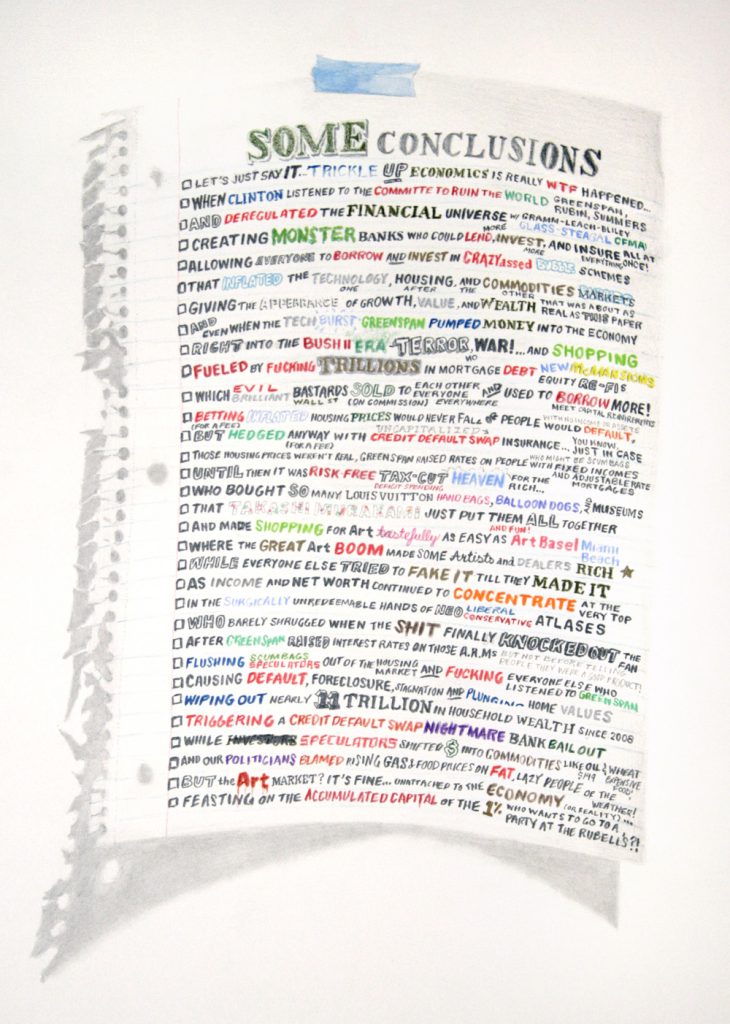 SOME CONCLUSIONS
LET'S JUST SAY IT... TRICKLE UP ECONOMICS IS REALLY WTF HAPPENED...
WHEN CLINTON LISTENED TO THE COMMITTE TO RUIN THE WORLD GREENSPAN, RUBIN, SUMMERS
AND DEREGULATED THE FINANCIAL UNIVERSE W/ GRAMM-LEACH-BLILEY GLASS-STEAGAL CFMA!
CREATING MONSTER BANKS WHO COULD LEND, MORE INVEST, AND INSURE ALL AT ONCE!
ALLOWING EVERYONE TO BORROW AND INVEST IN MORE CRAZYassed EVERYTHING SCHEMES
THAT INFLATED THE TECHNOLOGY, HOUSING, AND COMMODITIES MARKETS ONE AFTER THE OTHER
GIVING THE APPEARANCE OF GROWTH, VALUE, AND WEALTH THAT WAS ABOUT AS REAL AS THIS PAPER
AND EVEN WHEN THE TECH BURST GREENSPAN PUMPED MONEY INTO THE ECONOMY
RIGHT INTO THE BUSH II ERA TERROR, WAR!... AND SHOPPING
FUELED BY FUCKING TRILLIONS IN MORTGAGE DEBT NO NEW McMANSIONS EQUITY RE-FIs
WHICH EVIL BRILLIANT BASTARDS WALL ST SOLD (ON COMMISSION) TO EACH OTHER EVERYONE EVERYWHERE AND USED TO BORROW MORE! MEET CAPITAL REQUIREMENTS
BETTING (FOR A FEE) INFLATED HOUSING PRICES WOULD NEVER FALL OR PEOPLE WITH NO INCOME OR ASSETS WOULD DEFAULT,
BUT HEDGED (FOR A FEE) ANYWAY WITH UNCAPITALIZED CREDIT DEFAULT SWAP INSURANCE... YOU KNOW, JUST IN CASE
THOSE HOUSING PRICES WEREN'T REAL, GREENSPAN RAISED RATES ON PEOPLE WHO MIGHT BE SCUMBAGS WITH FIXED INCOMES AND ADJUSTABLE RATE MORTGAGES
UNTIL THEN IT WAS RISK-FREE TAX-CUT DEFICIT SPENDING HEAVEN FOR THE RICH...
WHO BOUGHT SO MANY LOUIS VUITTON HAND BAGS, BALLOON DOGS, AND MUSEUMS
THAT TAKASHI MURAKAMI JUST PUT THEM ALL TOGETHER
AND MADE SHOPPING FOR Art tastefully AS EASY AS AND FUN! Art Basel Miami Beach
WHERE THE GREAT Art BOOM MADE SOME Artists and DEALERS RICH
WHILE EVERYONE ELSE TRIED TO FAKE IT TILL THEY MADE IT
AS INCOME AND NET WORTH CONTINUED TO CONCENTRATE AT THE VERY TOP
IN THE SURGICALLY UNREDEEMABLE HANDS OF NEO LIBERAL CONSERVATIVE ATLASES
WHO BARELY SHRUGGED WHEN THE SHIT FINALLY KNOCKED OUT THE FAN
AFTER GREENSPAN RAISED INTEREST RATES ON THOSE A.R.Ms BUT NOT BEFORE TELLING PEOPLE THEY WERE A GOOD PRODUCT!
FLUSHING SCUMBAGS SPECULATORS OUT OF THE HOUSING MARKET AND FUCKING EVERYONE ELSE WHO LISTENED TO GREENSPAN
CAUSING DEFAULT, FORECLOSURE, STAGNATION AND PLUNGING HOME VALUES
WIPING OUT NEARLY 11 TRILLION IN HOUSEHOLD WEALTH SINCE 2008
TRIGGERING A CREDIT DEFAULT SWAP NIGHTMARE BANK BAIL OUT
WHILE INVESTORS SPECULATORS SHIFTED $ INTO COMMODITIES LIKE OIL & WHEAT
AND OUR POLITICIANS BLAMED RISING GAS & FOOD PRICES ON FAT, LAZY PEOPLE OR THE WEATHER!
BUT the Art MARKET? IT'S FINE... UNATTACHED TO THE ECONOMY (OR REALITY)...
FEASTING ON THE ACCUMULATED CAPITAL OF THE 1% WHO WANTS TO GO TO A PARTY AT THE RUBELLS?!